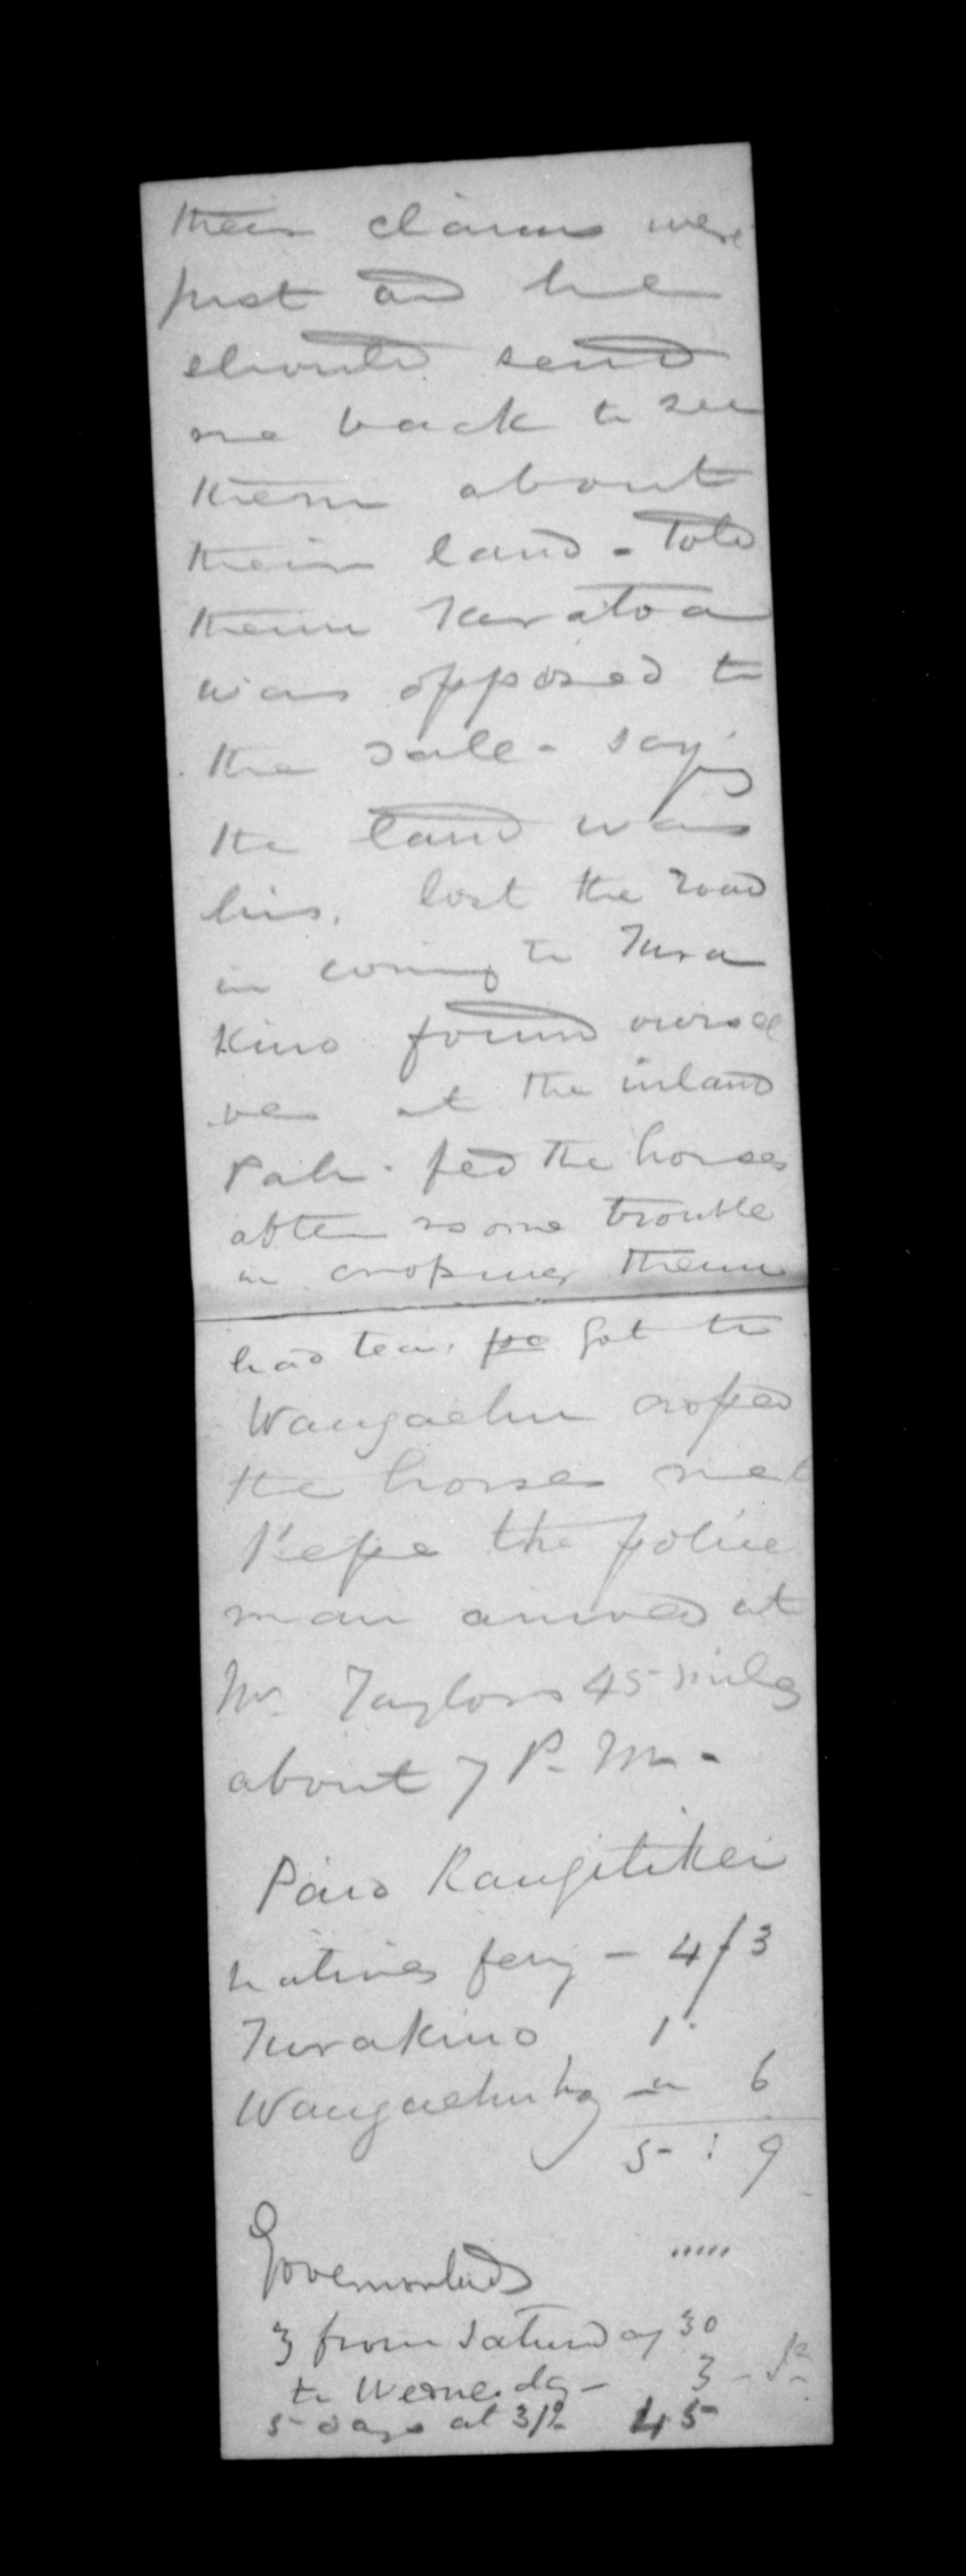 their claims were
just and he
should send
me back to see
them about
their land - Told
them Keratoa
was opposed to
the sale - say'g
the land was
his. lost the road
in coming to Tura
kino found oursel
ves at the inland
Pah. fed the horses
after some trouble
in crossing them
had tea. got to
Wangaehu crossed
the horses met
Kepe the police
man arrived at
Mr. Taylors 45 miles
about 7 P. M -
Paid Rangitikei
natives ferry - 4/3
Turakino 1
Wangaehu 6
5 : 9
3 from Saturday 30
to Wednesday - 3
5 days at 3/- 45